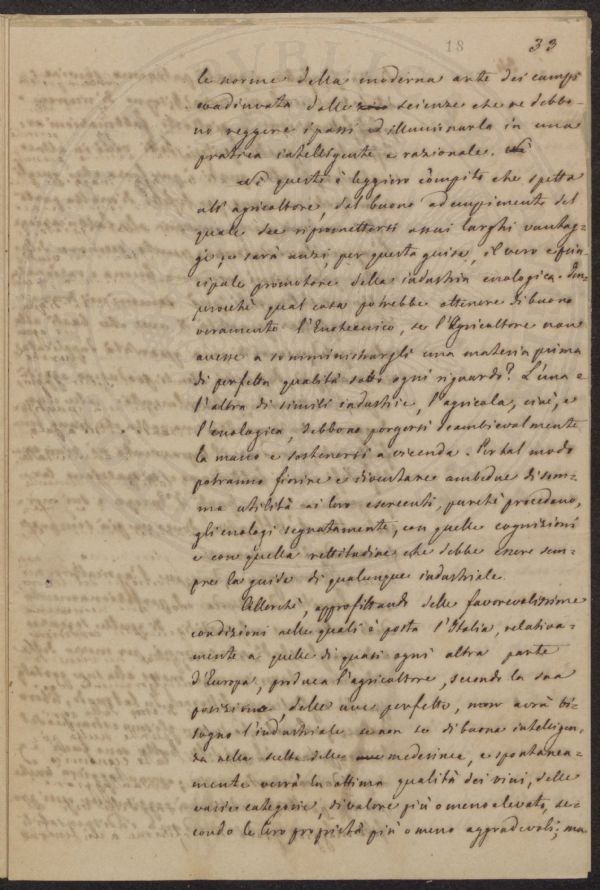 18 33
le norme della moderna arte dei campi
coadiuvata dalle scienze che ne debbo-
no reggere i passi ed illuminarla in una
pratica intelligente e razionale.
Nè questo è leggiero còmpito che spetta
all'agricoltore, dal buono adempimento del
quale dee ripromettersi assai larghi vantag-
gi, e sarà anzi, per questa guisa, il vero e prin-
cipale promotore della industria enologica. Im-
perocchè qual cosa potrebbe ottenere di buono
veramente l'Enotecnico, se l'Agricoltore non
avesse a somministrargli una materia prima
di perfetta qualità sotto ogni riguardo? L'una e
l'altra di simili industrie, l'agricola, cioè, e
l'enologica, debbono porgersi scambievolmente
la mano e sostenersi a vicenda. Per tal modo
potranno fiorire e diventare ambedue di som-
ma utilità ai loro esercenti, purchè procedano,
gli enologi segnatamente, con quelle cognizioni
e con quella rettitudine che debbe essere sem-
pre la guida di qualunque industriale.
Allorchè, approfittando delle favorevolissime
condizioni nelle quali è posta l'Italia, relativa-
mente a quelle di quasi ogni altra parte
d'Europa, produca l'agricoltore, secondo la sua
posizione, delle uve perfette, non avrà bi-
sogno l'industriale se non se di buona intelligen-
za nella scelta delle medesime, e spontanea-
mente verrà la ottima qualità dei vini, delle
varie categorie, di valore più o meno elevato, se-
condo le loro proprietà più o meno aggradevoli; ma